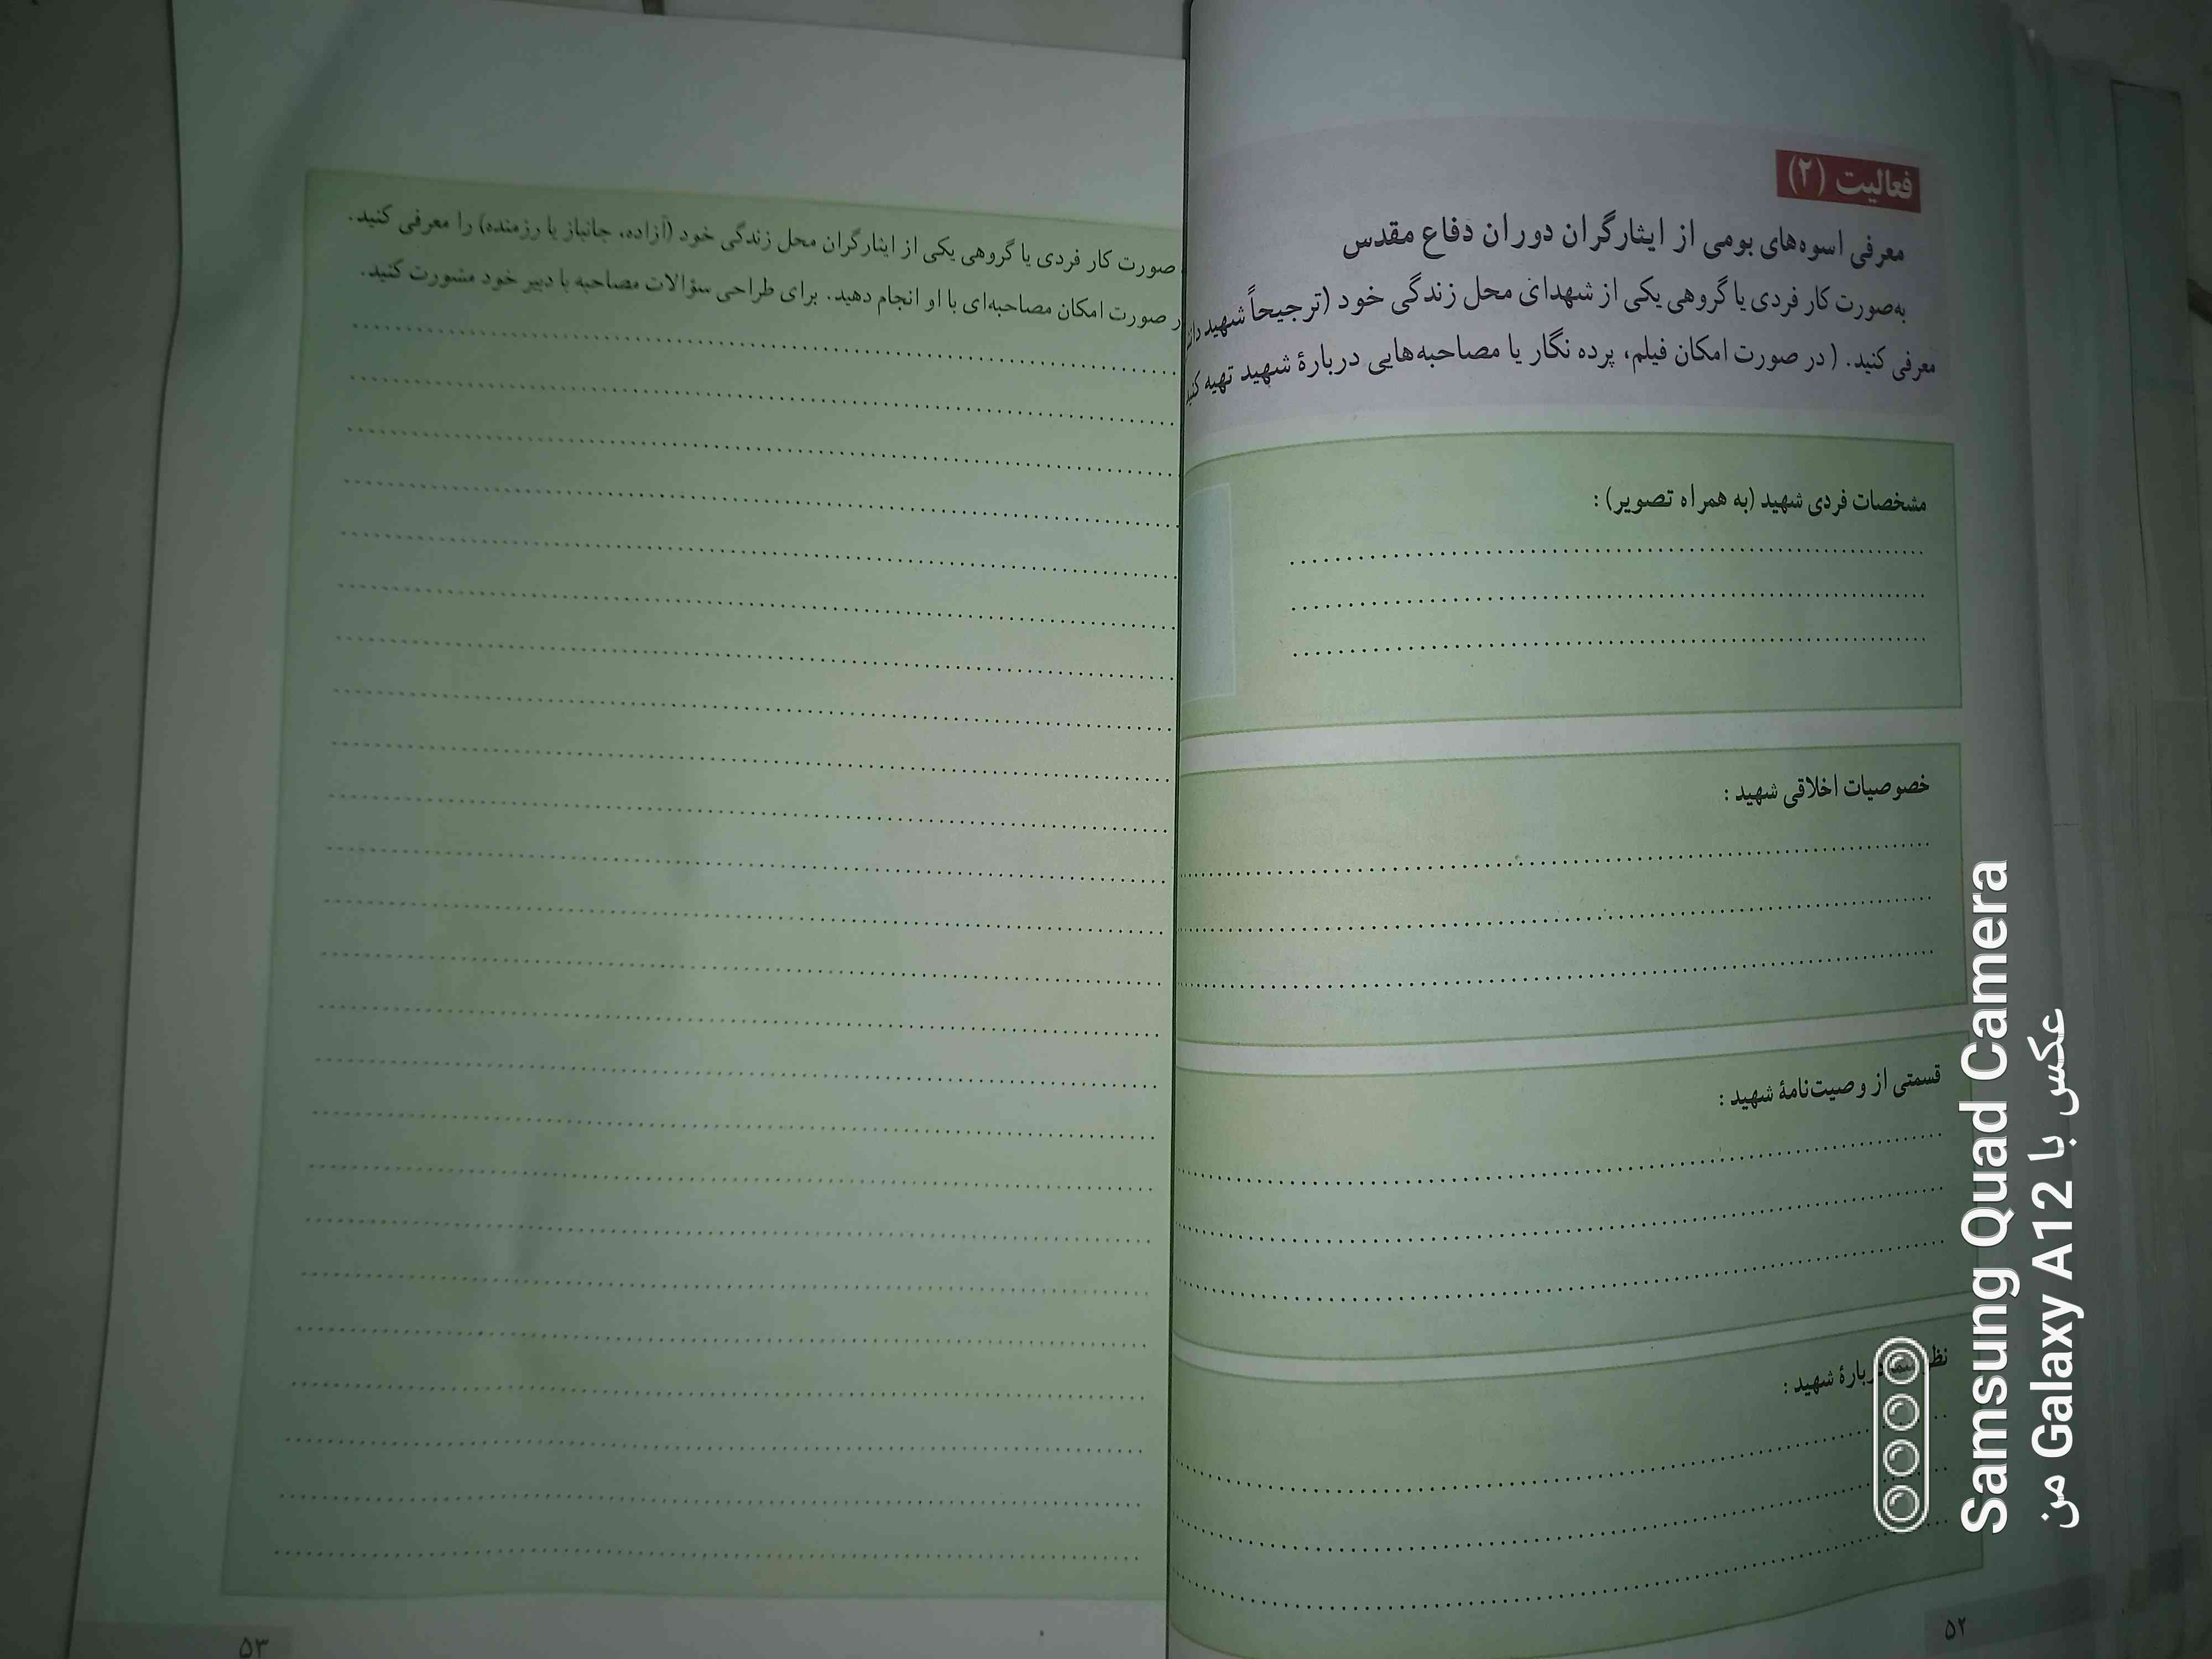 فعالیت (۲)
معرفی اسوه‌های بومی از ایثارگران دوران دفاع مقدس
به‌صورت کار فردی یا گروهی یکی از شهدای محل زندگی خود (ترجیحاً شهید
معرفی کنید. (در صورت امکان فیلم، پرده نگار یا مصاحبه‌هایی دربارهٔ شهید تهیه
مشخصات فردی شهید (به همراه تصویر) :
خصوصیات اخلاقی شهید :
قسمتی از وصیت‌نامهٔ شهید :
شهید :
۵۲
صورت کار فردی یا گروهی یکی از ایثارگران محل زندگی خود (آزاده، جانباز یا رزمنده) را معرفی کنید.
صورت امکان مصاحبه‌ای با او انجام دهید. برای طراحی سؤالات مصاحبه با دبیر خود مشورت کنید.
۵۳
Samsung Quad Camera
عکس با Galaxy A12 من